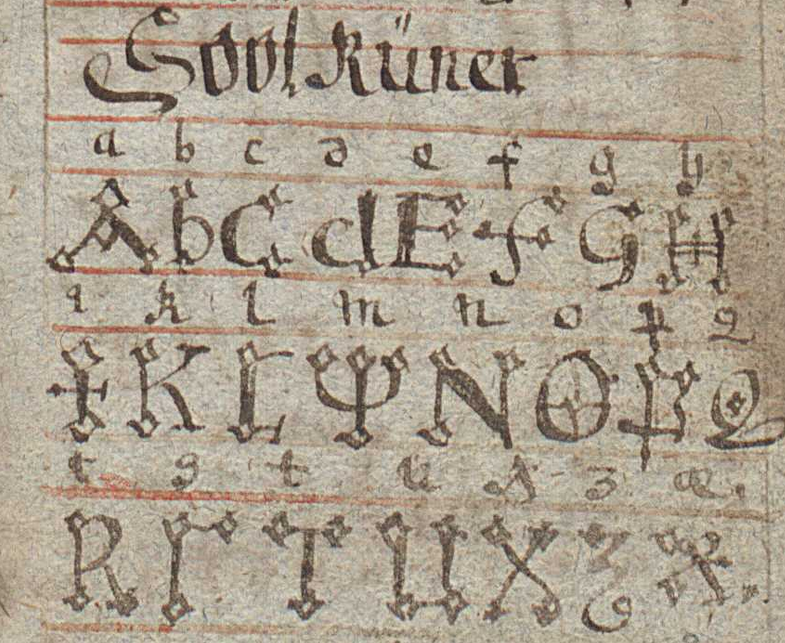 Sool Rüner
a b c d e f g h
A b C d E f G H
i k l m n o p q
K L Ψ N O P Q
r s t u x z æ.
R Γ T U X Z